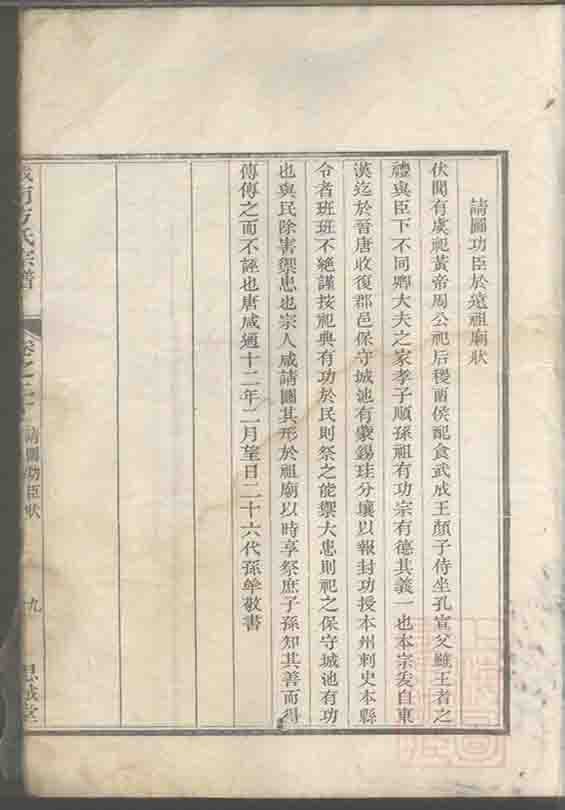 請圖功臣於遠祖廟狀
伏聞有虞祀黃帝周公祀后稷酇侯配食武成王顏子侍坐孔宣父雖王者之
禮與臣下不同卿大夫之家孝子順孫祖有功宗有德其義一也本宗爰自東
漢迄於晉唐收復郡邑保守城池有蒙錫珪分壤以報封功授本州刺史本縣
令者班班不絕謹按祀典有功於民則祭之能禦大患則祀之保守城池有功
也與民除害禦患也宗人咸請圖其形於祖廟以時享祭庶子孫知其善而得
傳傳之而不誣也唐咸通十二年二月望日二十六代孫羊敬書
方氏宗譜
卷之
請圖功臣狀
九
思誠堂